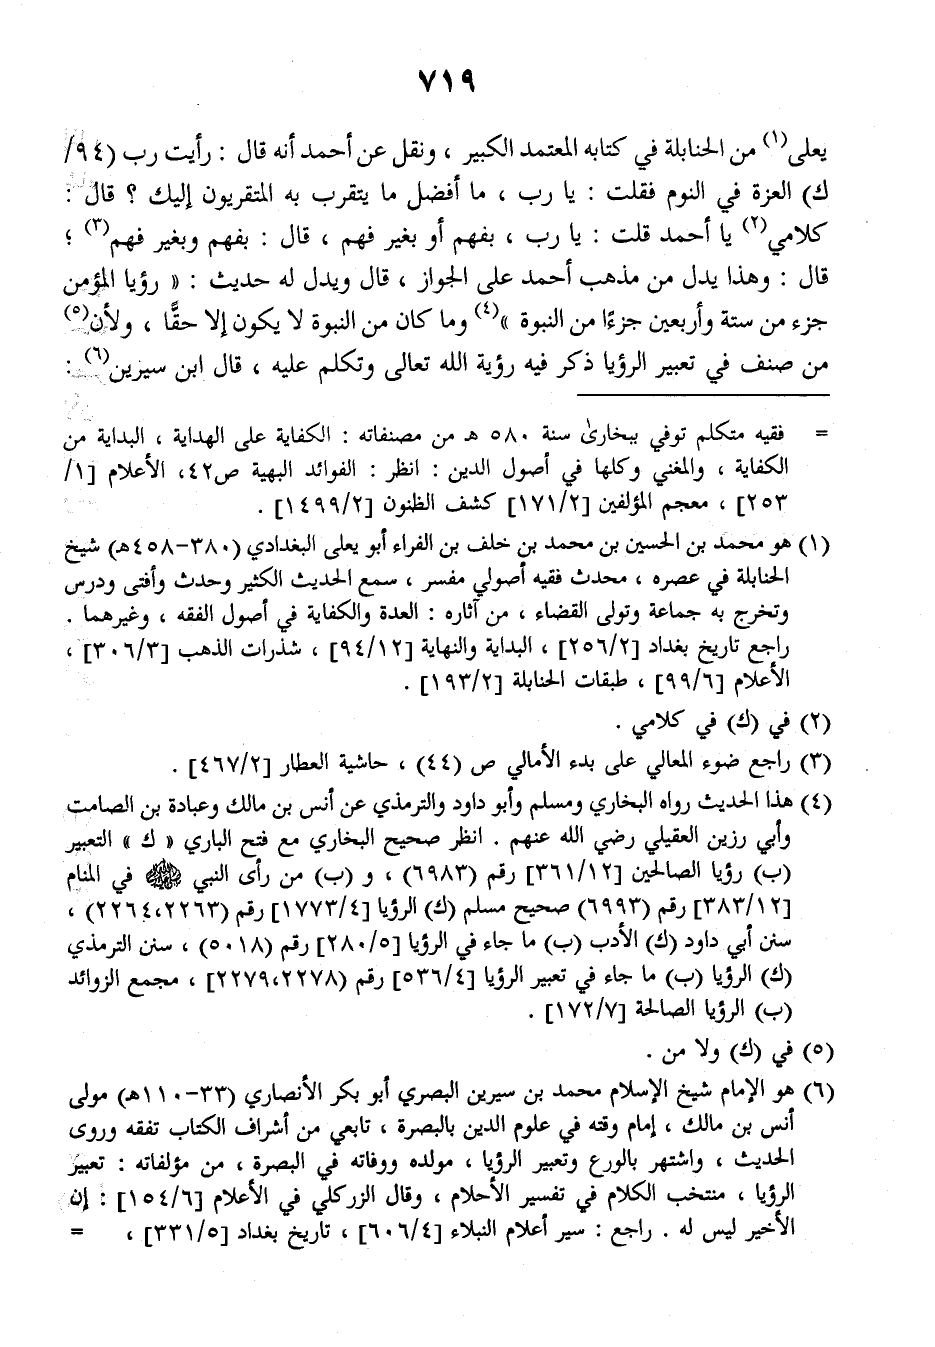 ٧١٩
يعلى(١) من الحنابلة في كتابه المعتمد الكبير ، ونقل عن أحمد أنه قال : رأيت رب (٩٤/
ك) العزة في النوم فقلت : يا رب ، ما أفضل ما يتقرب به المتقربون إليك ؟ قال :
كلامي(٢) يا أحمد قلت : يا رب ، بفهم أو بغير فهم ، قال : بفهم وبغير فهم(٣) ؛
قال : وهذا يدل من مذهب أحمد على الجواز ، قال ويدل له حديث : « رؤيا المؤمن
جزء من ستة وأربعين جزءًا من النبوة »(٤) وما كان من النبوة لا يكون إلا حقًّا ، ولأن(٥)
من صنف في تعبير الرؤيا ذكر فيه رؤية الله تعالى وتكلم عليه ، قال ابن سيرين(٦) :
= فقيه متكلم توفي ببخارىٰ سنة ٥٨٠ هـ من مصنفاته : الكفاية على الهداية ، البداية من
الكفاية ، والمغني وكلها في أصول الدين : انظر : الفوائد البهية ص٤٢، الأعلام [١/
٢٥٣] ، معجم المؤلفين [١٧١/٢] كشف الظنون [١٤٩٩/٢] .
(١) هو محمد بن الحسين بن محمد بن خلف بن الفراء أبو يعلى البغدادي (٣٨٠–٤٥٨هـ) شيخ
الحنابلة في عصره ، محدث فقيه أصولي مفسر ، سمع الحديث الكثير وحدث وأفتى ودرس
وتخرج به جماعة وتولى القضاء ، من آثاره : العدة والكفاية في أصول الفقه ، وغيرهما .
راجع تاريخ بغداد [٢٥٦/٢] ، البداية والنهاية [٩٤/١٢] ، شذرات الذهب [٣٠٦/٣] ،
الأعلام [٩٩/٦] ، طبقات الحنابلة [١٩٣/٢] .
(٢) في (ك) في كلامي .
(٣) راجع ضوء المعالي على بدء الأمالي ص (٤٤) ، حاشية العطار [٤٦٧/٢] .
(٤) هذا الحديث رواه البخاري ومسلم وأبو داود والترمذي عن أنس بن مالك وعبادة بن الصامت
وأبي رزين العقيلي رضي الله عنهم . انظر صحيح البخاري مع فتح الباري « ك » التعبير
(ب) رؤيا الصالحين [٣٦١/١٢] رقم (٦٩٨٣) ، و (ب) من رأى النبي ﷺ في المنام
[٣٨٣/١٢] رقم (٦٩٩٣) صحيح مسلم (ك) الرؤيا [١٧٧٣/٤] رقم (٢٢٦٣،٢٢٦٤) ،
سنن أبي داود (ك) الأدب (ب) ما جاء في الرؤيا [٢٨٠/٥] رقم (٥٠١٨) ، سنن الترمذي
(ك) الرؤيا (ب) ما جاء في تعبير الرؤيا [٥٣٦/٤] رقم (٢٢٧٨،٢٢٧٩] ، مجمع الزوائد
(ب) الرؤيا الصالحة [١٧٢/٧] .
(٥) في (ك) ولا من .
(٦) هو الإمام شيخ الإسلام محمد بن سيرين البصري أبو بكر الأنصاري (٣٣–١١٠هـ) مولى
أنس بن مالك ، إمام وقته في علوم الدين بالبصرة ، تابعي من أشراف الكتاب تفقه وروى
الحديث ، واشتهر بالورع وتعبير الرؤيا ، مولده ووفاته في البصرة ، من مؤلفاته : تعبير
الرؤيا ، منتخب الكلام في تفسير الأحلام ، وقال الزركلي في الأعلام [١٥٤/٦] : إن
الأخير ليس له . راجع : سير أعلام النبلاء [٦٠٦/٤] ، تاريخ بغداد [٣٣١/٥] ، =